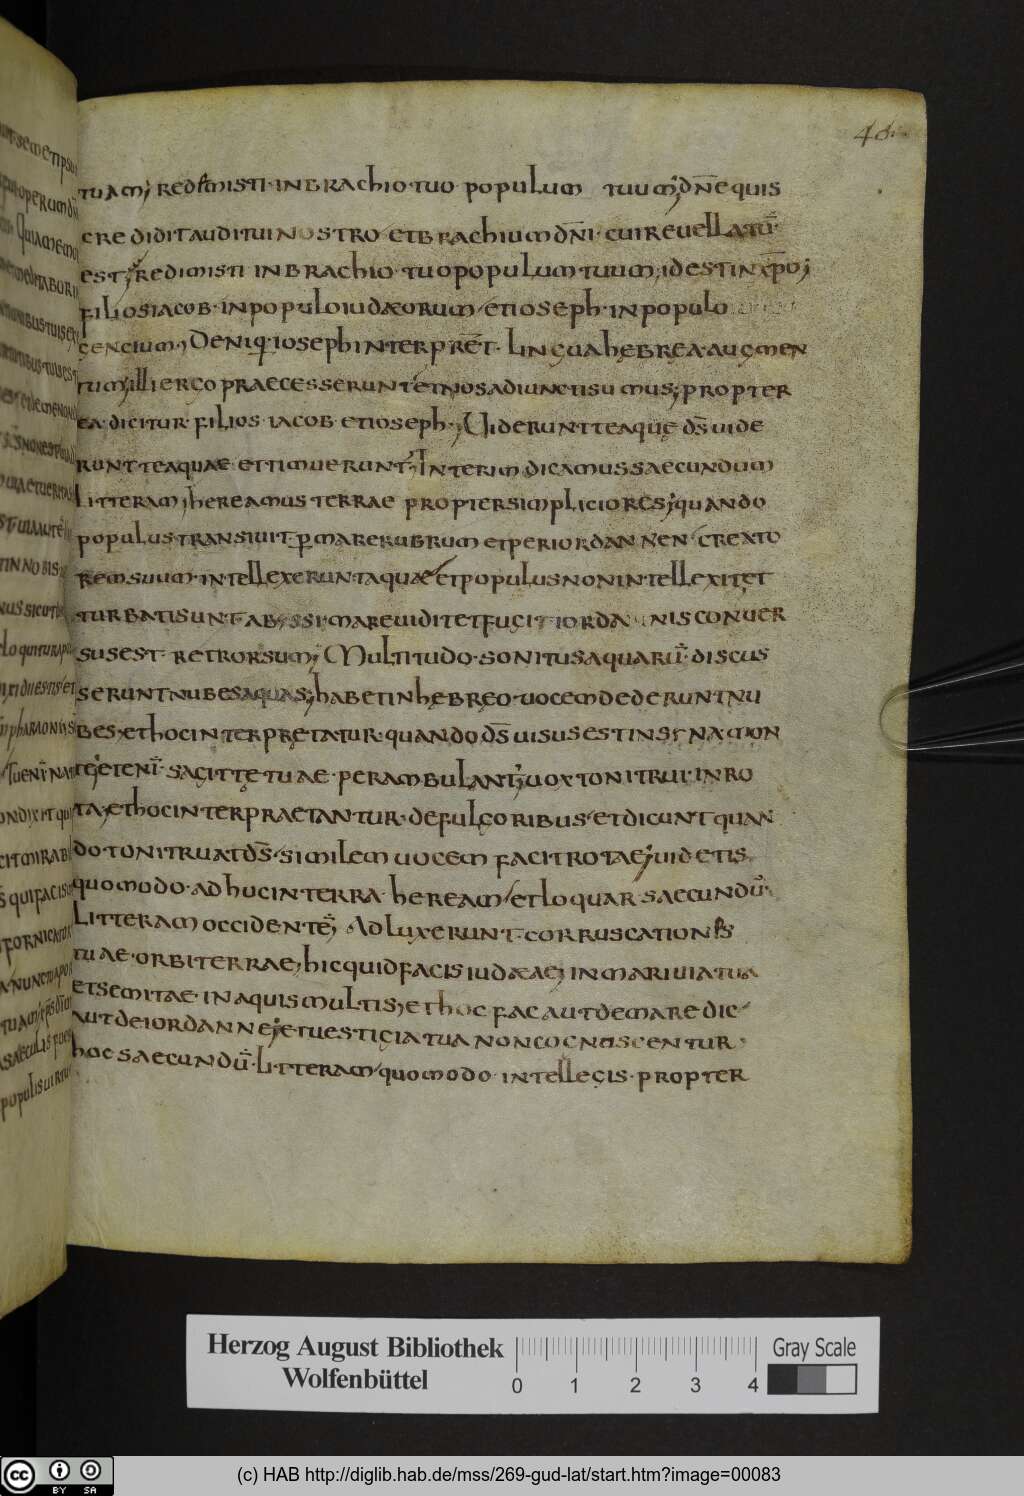 40.
tuam; redemisti· in brachio· tuo· populum tuum; dn̄e quis
credidit auditui nostro· et brachium dn̄i· cui reuellatū·
est; redimisti in brachio· tuo populum tuum; id est in xp̄o;
filios iacob· in populo iudæorum· et ioseph· in populo
gencium; Deniq· ioseph interpret̄· lingua hebrea· augmen
tum; illi ergo praecesserunt et nos adiuncti sumus; propter
ea dicitur· filios· iacob· et ioseph·; Uiderunt te aque ds̄ uide
runt te aquae· et timuerunt; Interim dicamus saecundum
litteram; hereamus terrae propter simpliciores; quando
populus transiuit· p mare rubrum et per iordannen· creato
rem suum· intellexerunt aquæ et populus non intellexit et
turbati sunt abyssi· mare uidit et fugit iordannis conuer
sus est· retrorsum; Multitudo· sonitus aquarū· discus
serunt nubes aquas; hab& in hebreo· uocem dederunt nu
bes· et hoc interpretatur· quando ds̄ uisus est in syna mon
te; etenī· sagitte tuae· perambulant; uox tonitrui· in ro
ta; et hoc interpraetantur· de fulgoribus· et dicunt quan
do· tonitruat ds̄· similem uocem facit rotae; uidetis,
quomodo· adhuc in terra· heream· et loquar saecundū·
litteram occidentē; Adluxerunt· corruscationes
tuae· orbi terrae; hic quid facis iudæae; in mari uia tua
et semitae· in aquis multis; et hoc fac aut de mare dic
aut de iordanne; et uestigia tua non cognoscentur·
hoc saecundū· litteram· quomodo· intellegis· propter
Herzog August Bibliothek
Wolfenbüttel
0 1 2 3 4
Gray Scale
(c) HAB http://diglib.hab.de/mss/269-gud-lat/start.htm?image=00083